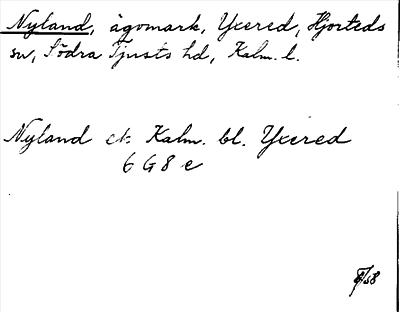 Nyland, ägomark, Yxered, Hjorteds
sn, Södra Tjusts hd, Kalm. l.
Nyland ek. Kalm. bl. Yxered
6 G 8 e